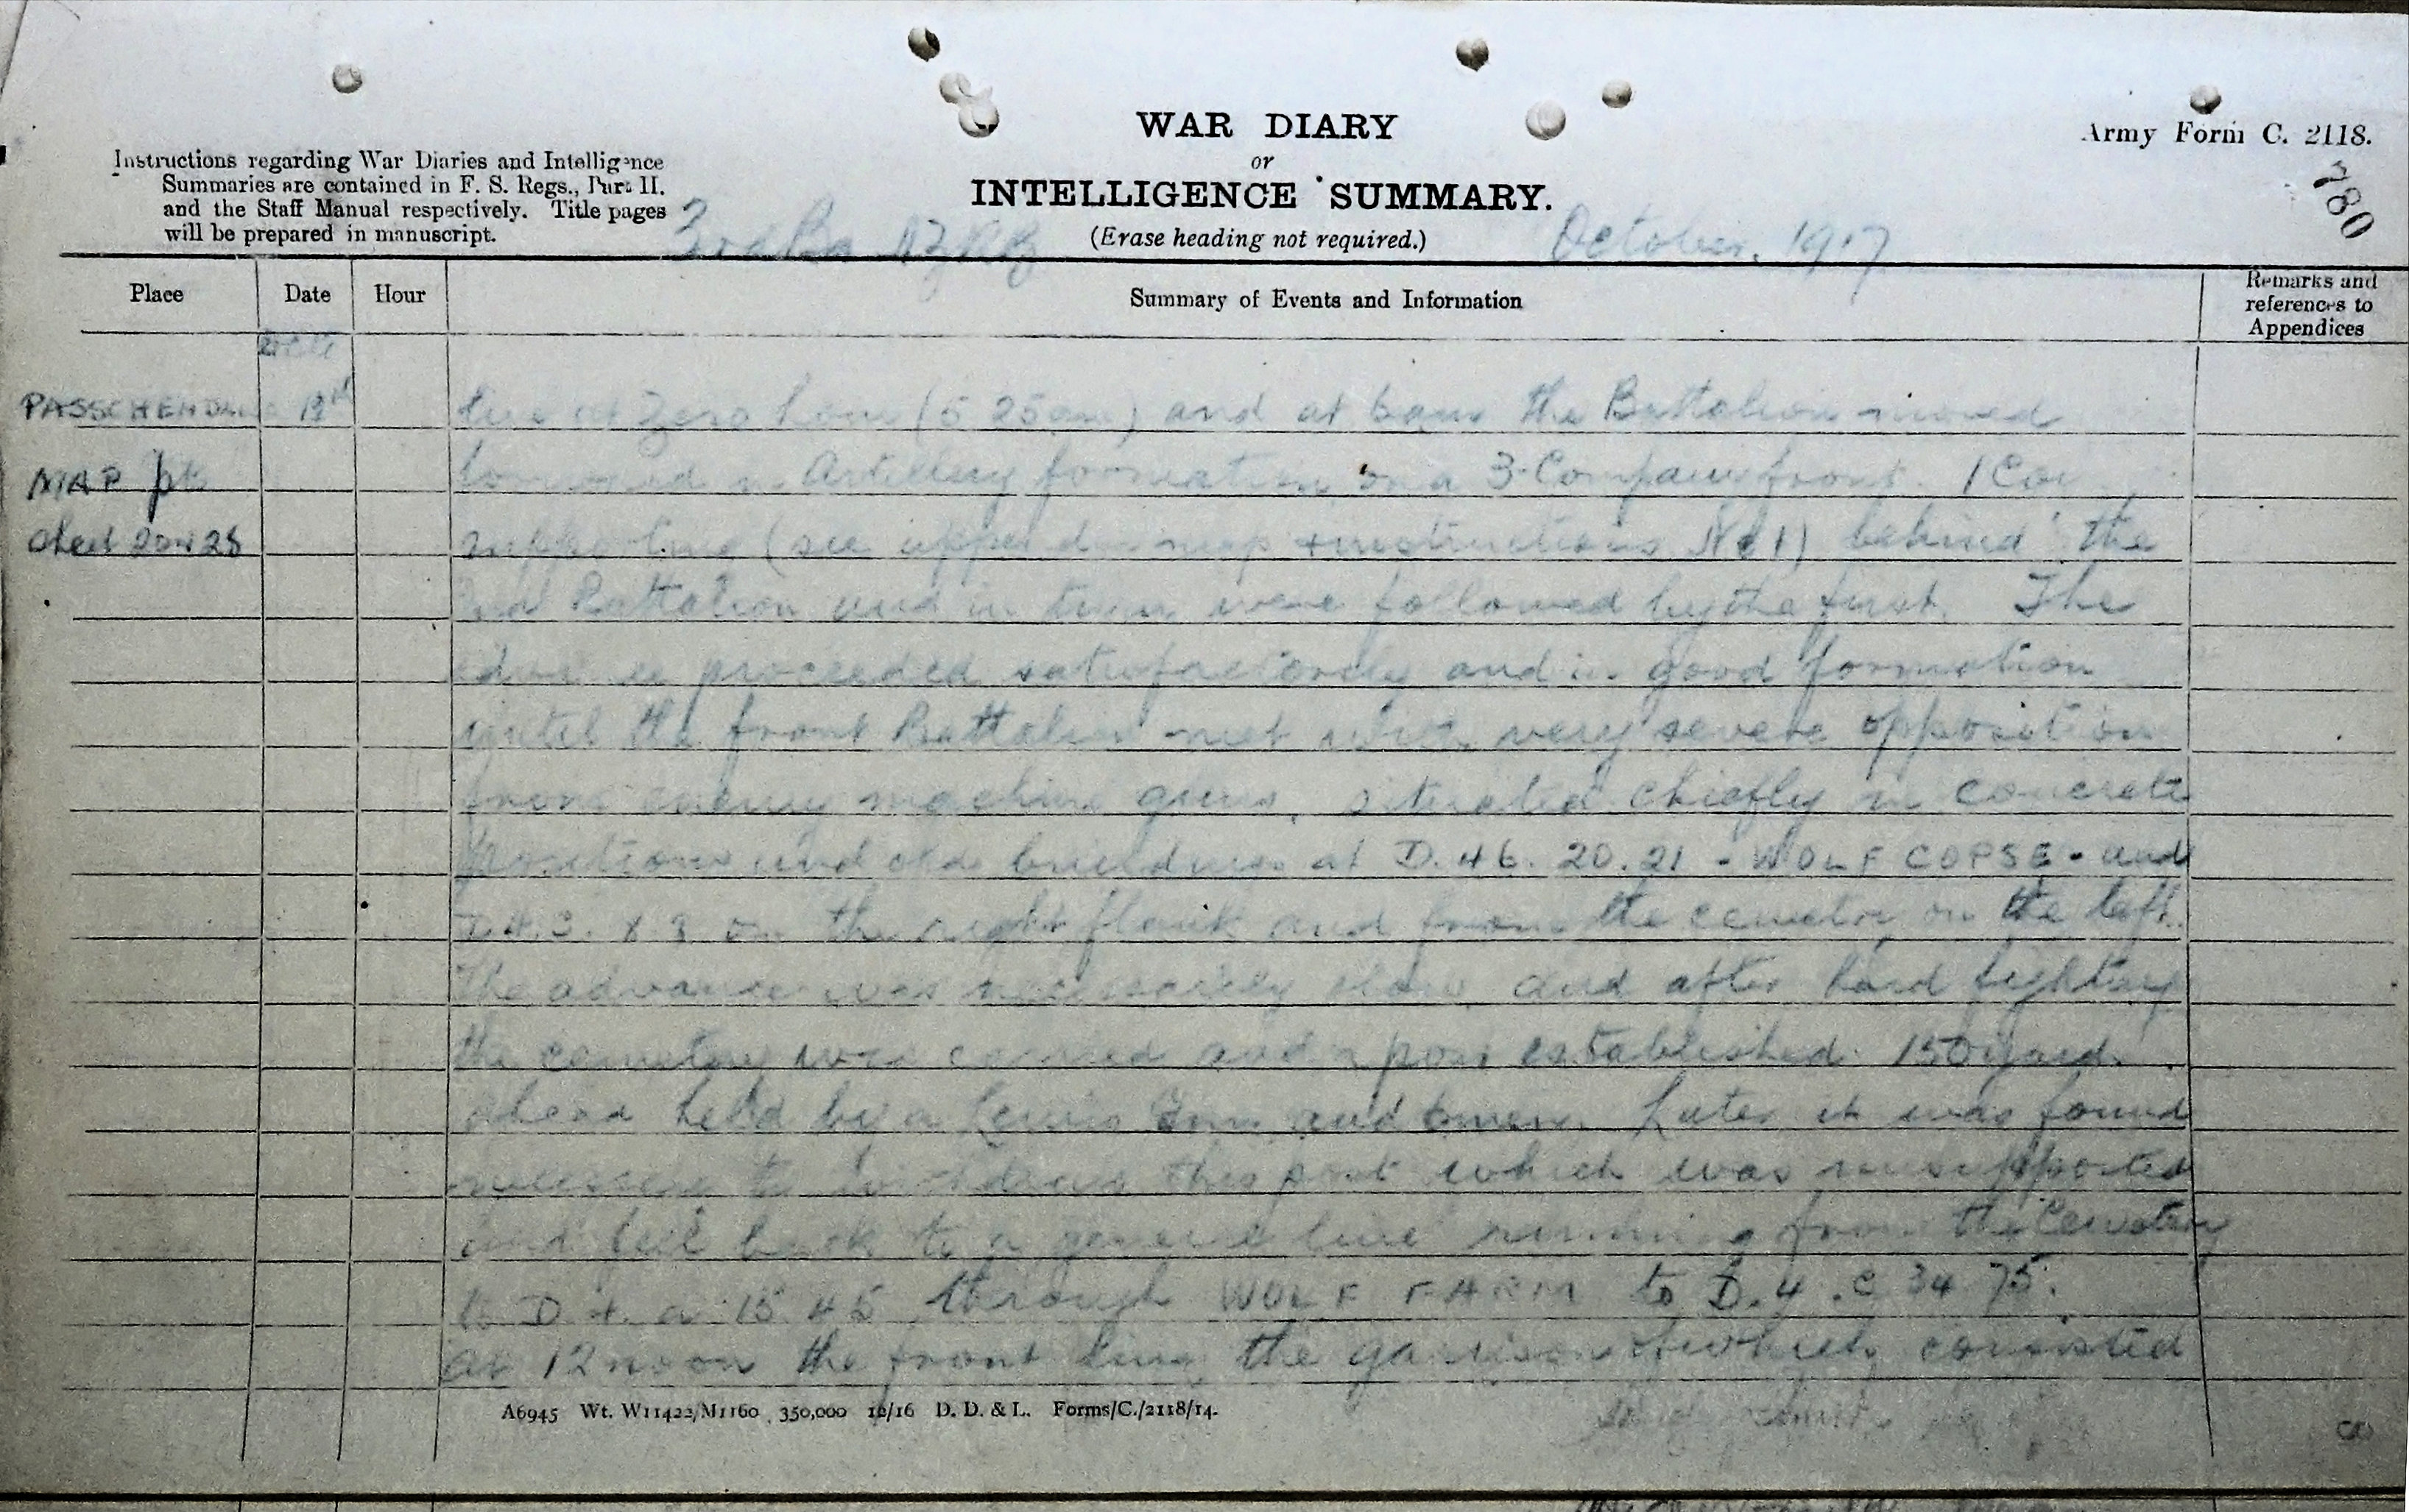 WAR DIARY
or
INTELLIGENCE SUMMARY.
(Erase heading not required.)
Army Form C. 2118.
780
Instructions regarding War Diaries and Intelligence
Summaries are contained in F. S. Regs., Part II.
and the Staff Manual respectively. Title pages
will be prepared in manuscript.
3rd Bn NZRB
October. 1917
Place Date Hour Summary of Events and Information Remarks and
references to
Appendices
PASSCHENDALE
MAP pt
sheet 20 & 28
line at Zero hour (5 25am) and at 6am the Battalion moved
forward in Artillery formation on a 3 Company front. 1 Coy
supporting (see appendix map + instructions No 1) behind the
2nd Battalion and in turn were followed by the first. The
advance proceeded satisfactorily and in good formation
until the front Battalion met with very severe opposition
from enemy machine guns, situated chiefly in concrete
positions and old buildings at D.4 b. 20.21 - WOLF COPSE - and
on the right flank and from the cemetry on the left.
The advance was necessarily slow and after hard fighting
the cemetery was carried and a post established 150 yards
ahead held by a Lewis Gun and 6 men. Later it was found
necessary to withdraw this post which was unsupported
and fell back to a general line running from the Cemetery
to D 4. a 15 45 through WOLF FARM to D.4 .c 34 75.
At 12 noon the front line the garrison of which consisted
A6945 Wt. W11422/M1160 350,000 12/16 D. D. & L. Forms/C./2118/14.
8